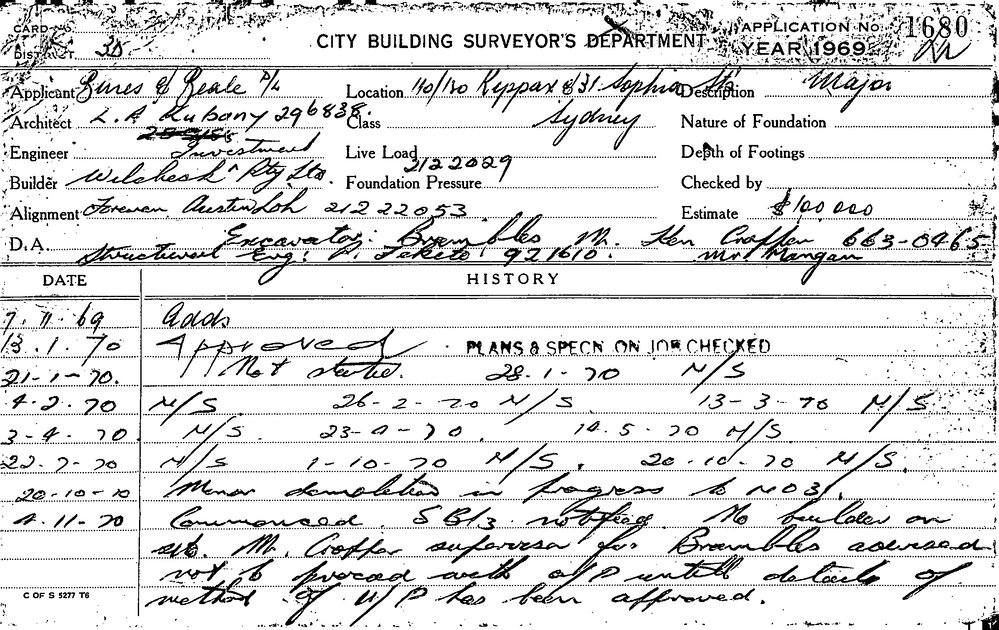 CARD No. CITY BUILDING SURVEYOR'S DEPARTMENT APPLICATION No. 1680
DISTRICT 3D YEAR 1969
Applicant & Beale P/L Location 110/120 Kippax & 31 Sophia Sts Description Major
Architect L. A Kubany 296838. Class Sydney Nature of Foundation
Engineer Investment Live Load 2122029 Depth of Footings
Builder Wilcheck Pty Ltd. Foundation Pressure Checked by
Alignment Foreman Austin Loh 21222053 Estimate $100 000
D.A. Excavator: Brambles Mr. Ken Cropper 663-0465
Structural Eng: P. Fekete 921610. Mr. Mangan
DATE HISTORY
7. 11. 69 Adds
13. 1. 70 Approved PLANS & SPECN. ON JOB CHECKED
21-1-70. Not started. 28-1-70 N/S
4-2-70 N/S 26-2-70 N/S. 13-3-70 N/S.
3-4-70 N/S. 23-4-70. 14.5-70 N/S
22-7-70 N/S 1-10-70 N/S. 20-10-70 N/S.
20-10-70 Minor demolition in progress to No 31.
4.11-70 Commenced. SB13 notified. No builder on
site. Mr. Cropper supervisor for Brambles advised
not to proceed with U/P until details of
method of U/P has been approved.
C OF S 5277 T6